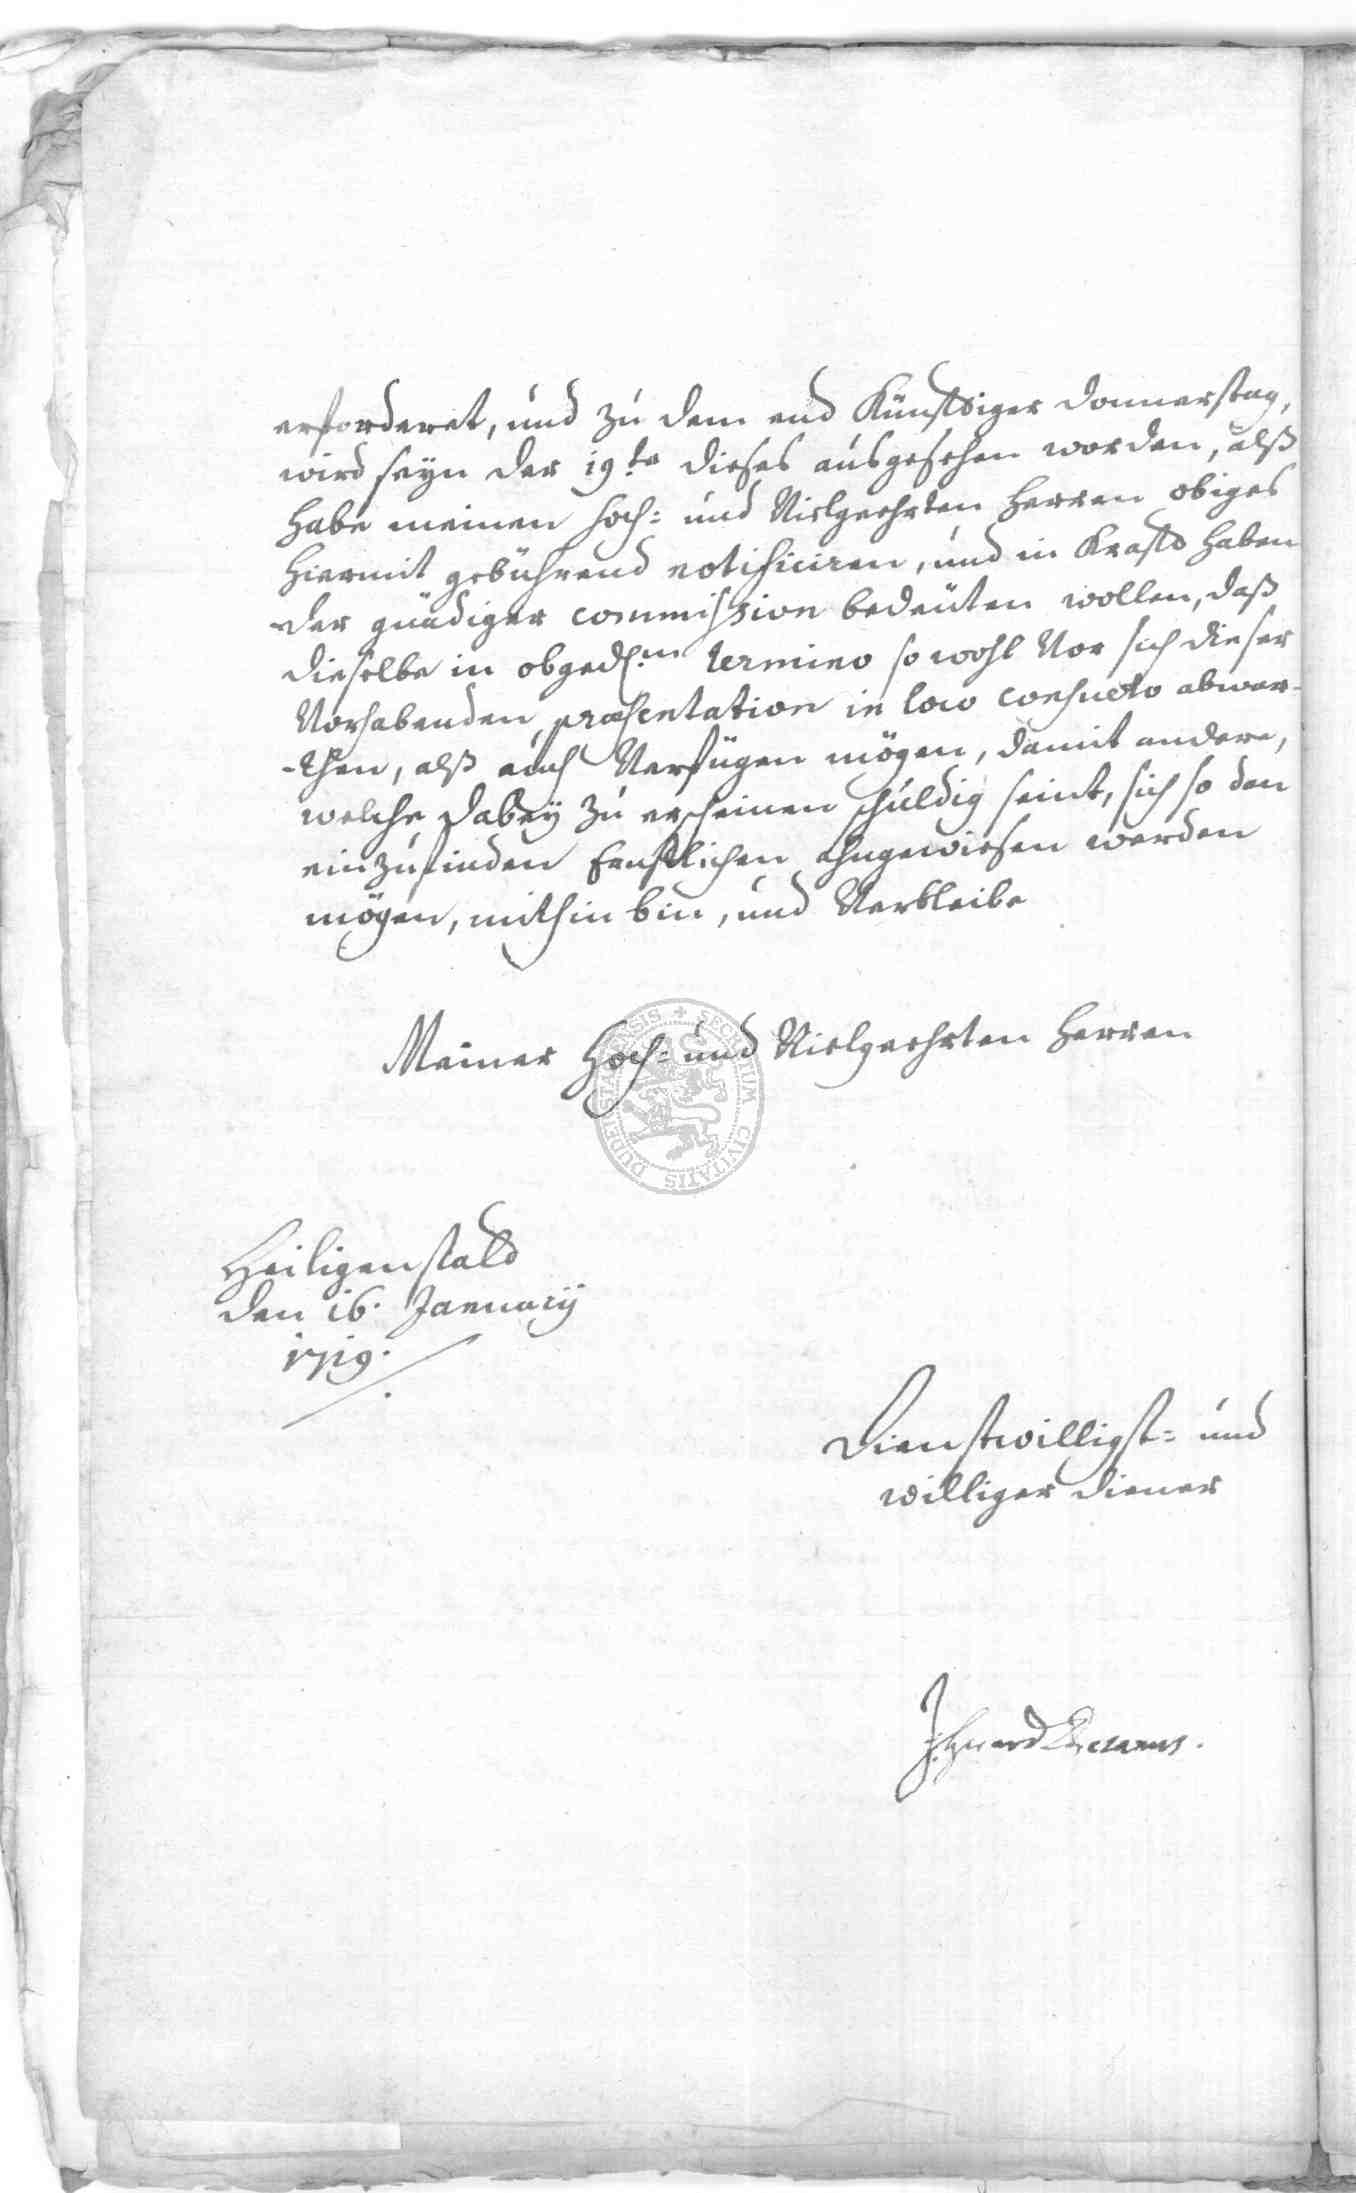 erforderet, und zu dem end Künfftiger donnerstag,
wird seyn der 19.te dieses ausgesehen worden, alß
habe meinen hoch= und Vielgeehrten Herren obiges
hiermit gebührend notificiren, und in Krafft haben
der gnädiger commission bedeüten wollen, daß
dieselbe in obged.m termino so wohl Vor sich dieser
Vorhabenden præsentation in loco consueto abwar-
-then, alß auch Verfügen mögen, damit andere,
welche dabeÿ zu erscheinen schuldig seint, sich so dan
einzufinden Ernstlichen ahngewiesen werden
mögen, mithin bin, und Verbleibe
Meiner Hoch= und Vielgeehrten Herren
SECRETUM CIVITATIS DUDERSTADENSIS
Heiligenstadt
den 16. Januarÿ
1719.
Dienstwilligst= und
williger diener